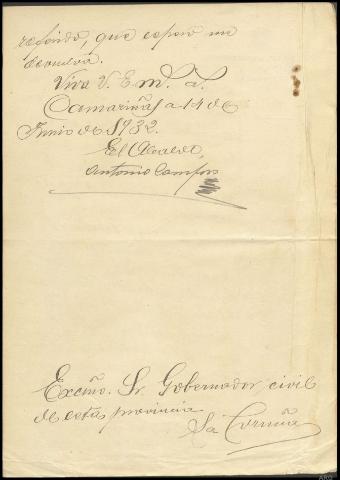 referido, que espero me
devuelva.
Viva V. E. m.s a.s
Camariñas a 14 de
Junio de 1932.
El Alcalde,
Antonio Campos
Excmo. Sr. Gobernador civil
de esta provincia
La Coruña
ARG